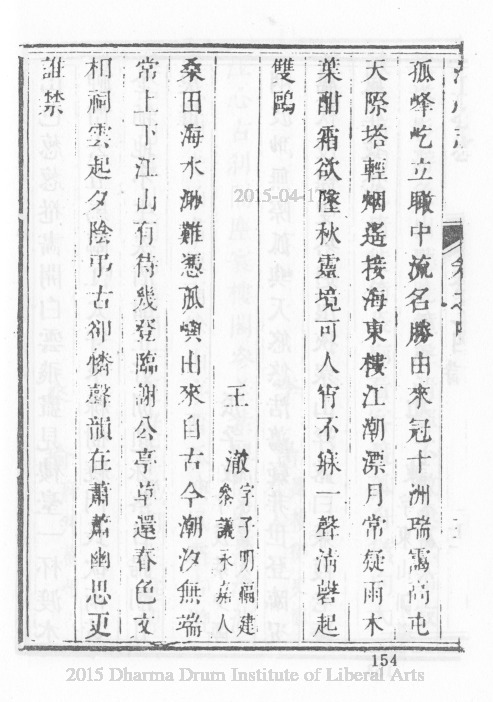 孤峰屹立職中流名勝由來冠十洲瑞靄高屯
天際塔輕烟遙接海東樓江潮漂月常疑雨木
葉酣霜欲墜秋靈境可人宵不寐一聲清磬起
雙鷗
王澈字子明福建
參議永嘉人
桑田海水渺難憑孤嶼由來自古今潮汐無端
常上下江山有待幾登臨謝公亭草還春色文
相祠雲起夕陰弔古卻憐聲韻在蕭蕭幽思更
誰禁
2015-04-17
154
2015 Dharma Drum Institute of Liberal Arts